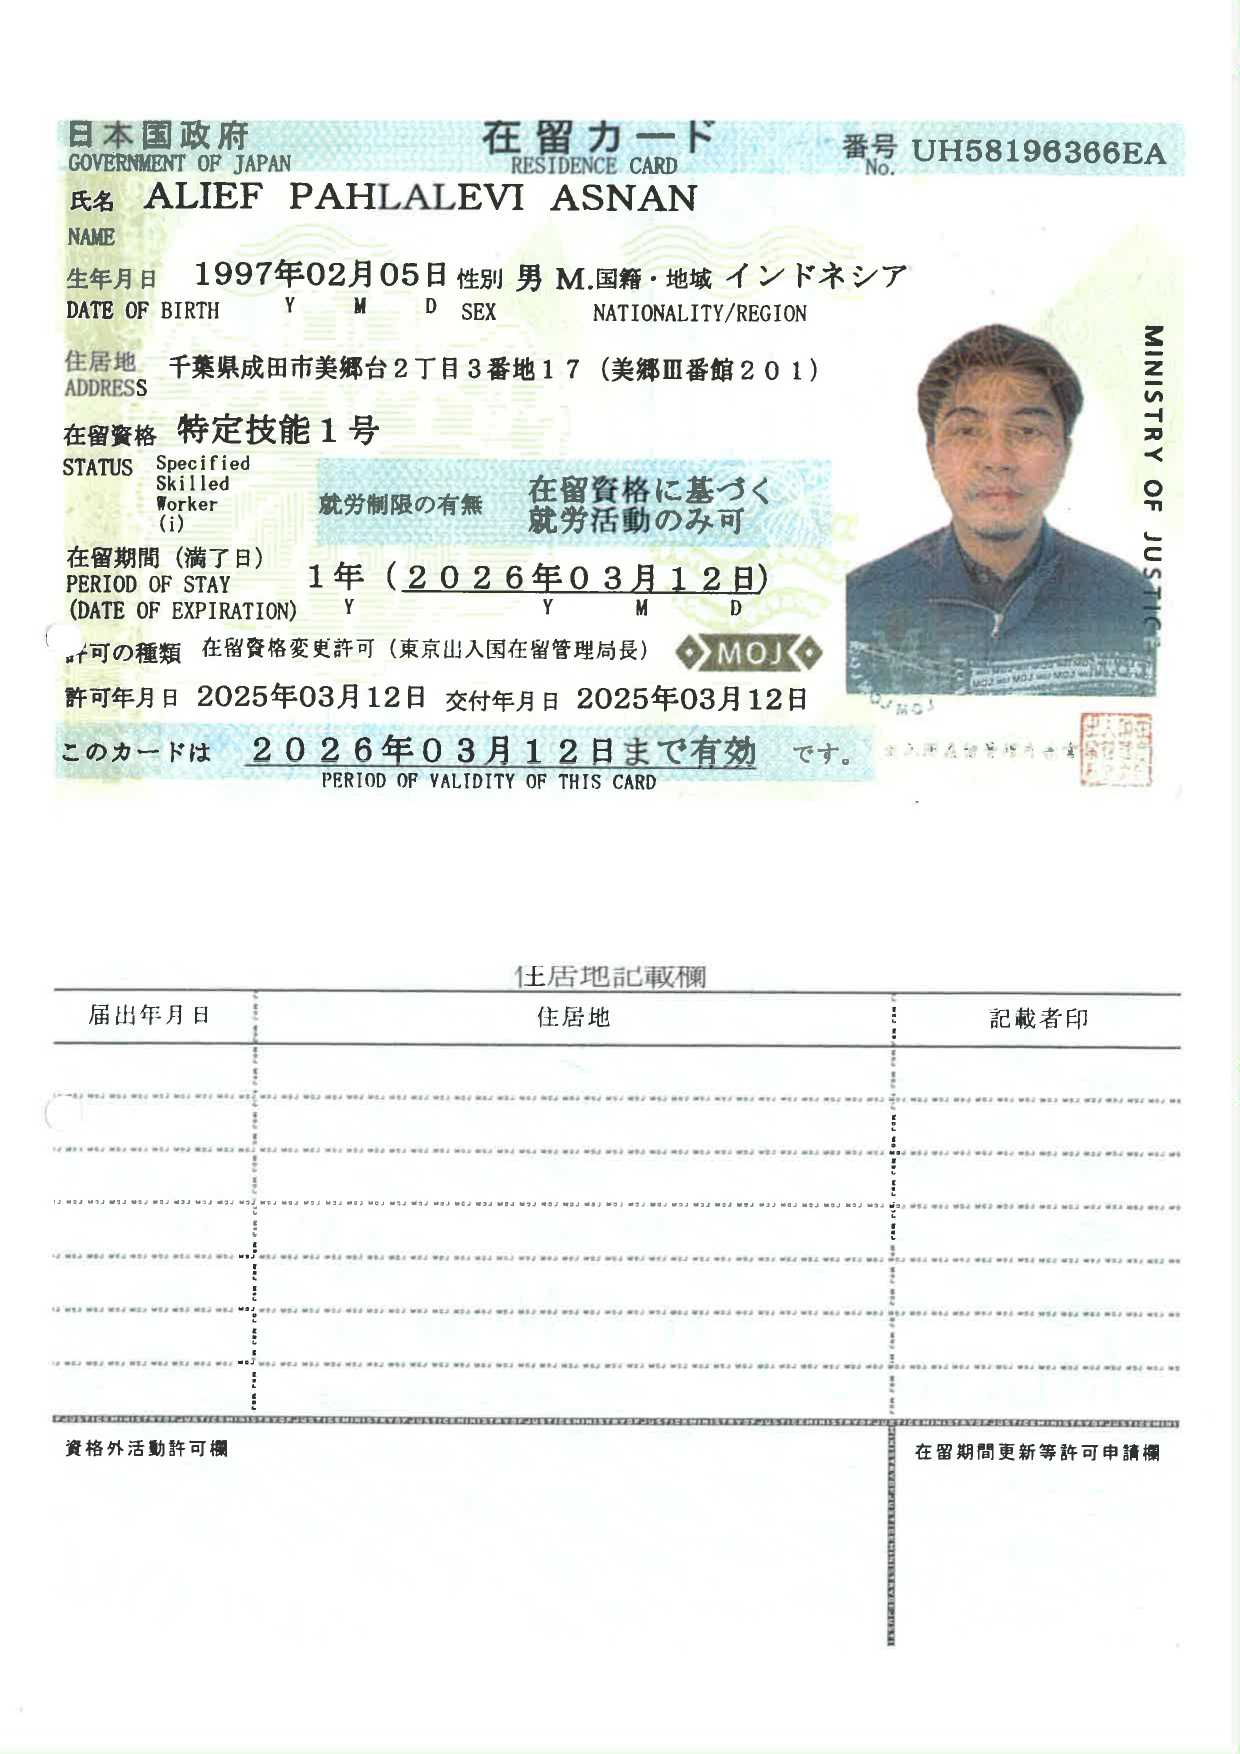 日本国政府 在留カード 番号 UH58196366EA
GOVERNMENT OF JAPAN RESIDENCE CARD No.
氏名 ALIEF PAHLALEVI ASNAN
NAME
生年月日 1997年02月05日 性別 男 M. 国籍・地域 インドネシア
DATE OF BIRTH Y M D SEX NATIONALITY/REGION
住居地 千葉県成田市美郷台2丁目3番地17(美郷Ⅲ番館201)
ADDRESS
在留資格 特定技能1号
STATUS Specified
Skilled
Worker
(i)
就労制限の有無 在留資格に基づく
就労活動のみ可
在留期間(満了日)
PERIOD OF STAY 1年(2026年03月12日)
(DATE OF EXPIRATION) Y Y M D
許可の種類 在留資格変更許可(東京出入国在留管理局長)
MOJ
許可年月日 2025年03月12日 交付年月日 2025年03月12日
このカードは 2026年03月12日まで有効 です。
PERIOD OF VALIDITY OF THIS CARD
MINISTRY OF JUSTICE
住居地記載欄
届出年月日 住居地 記載者印
資格外活動許可欄 在留期間更新等許可申請欄